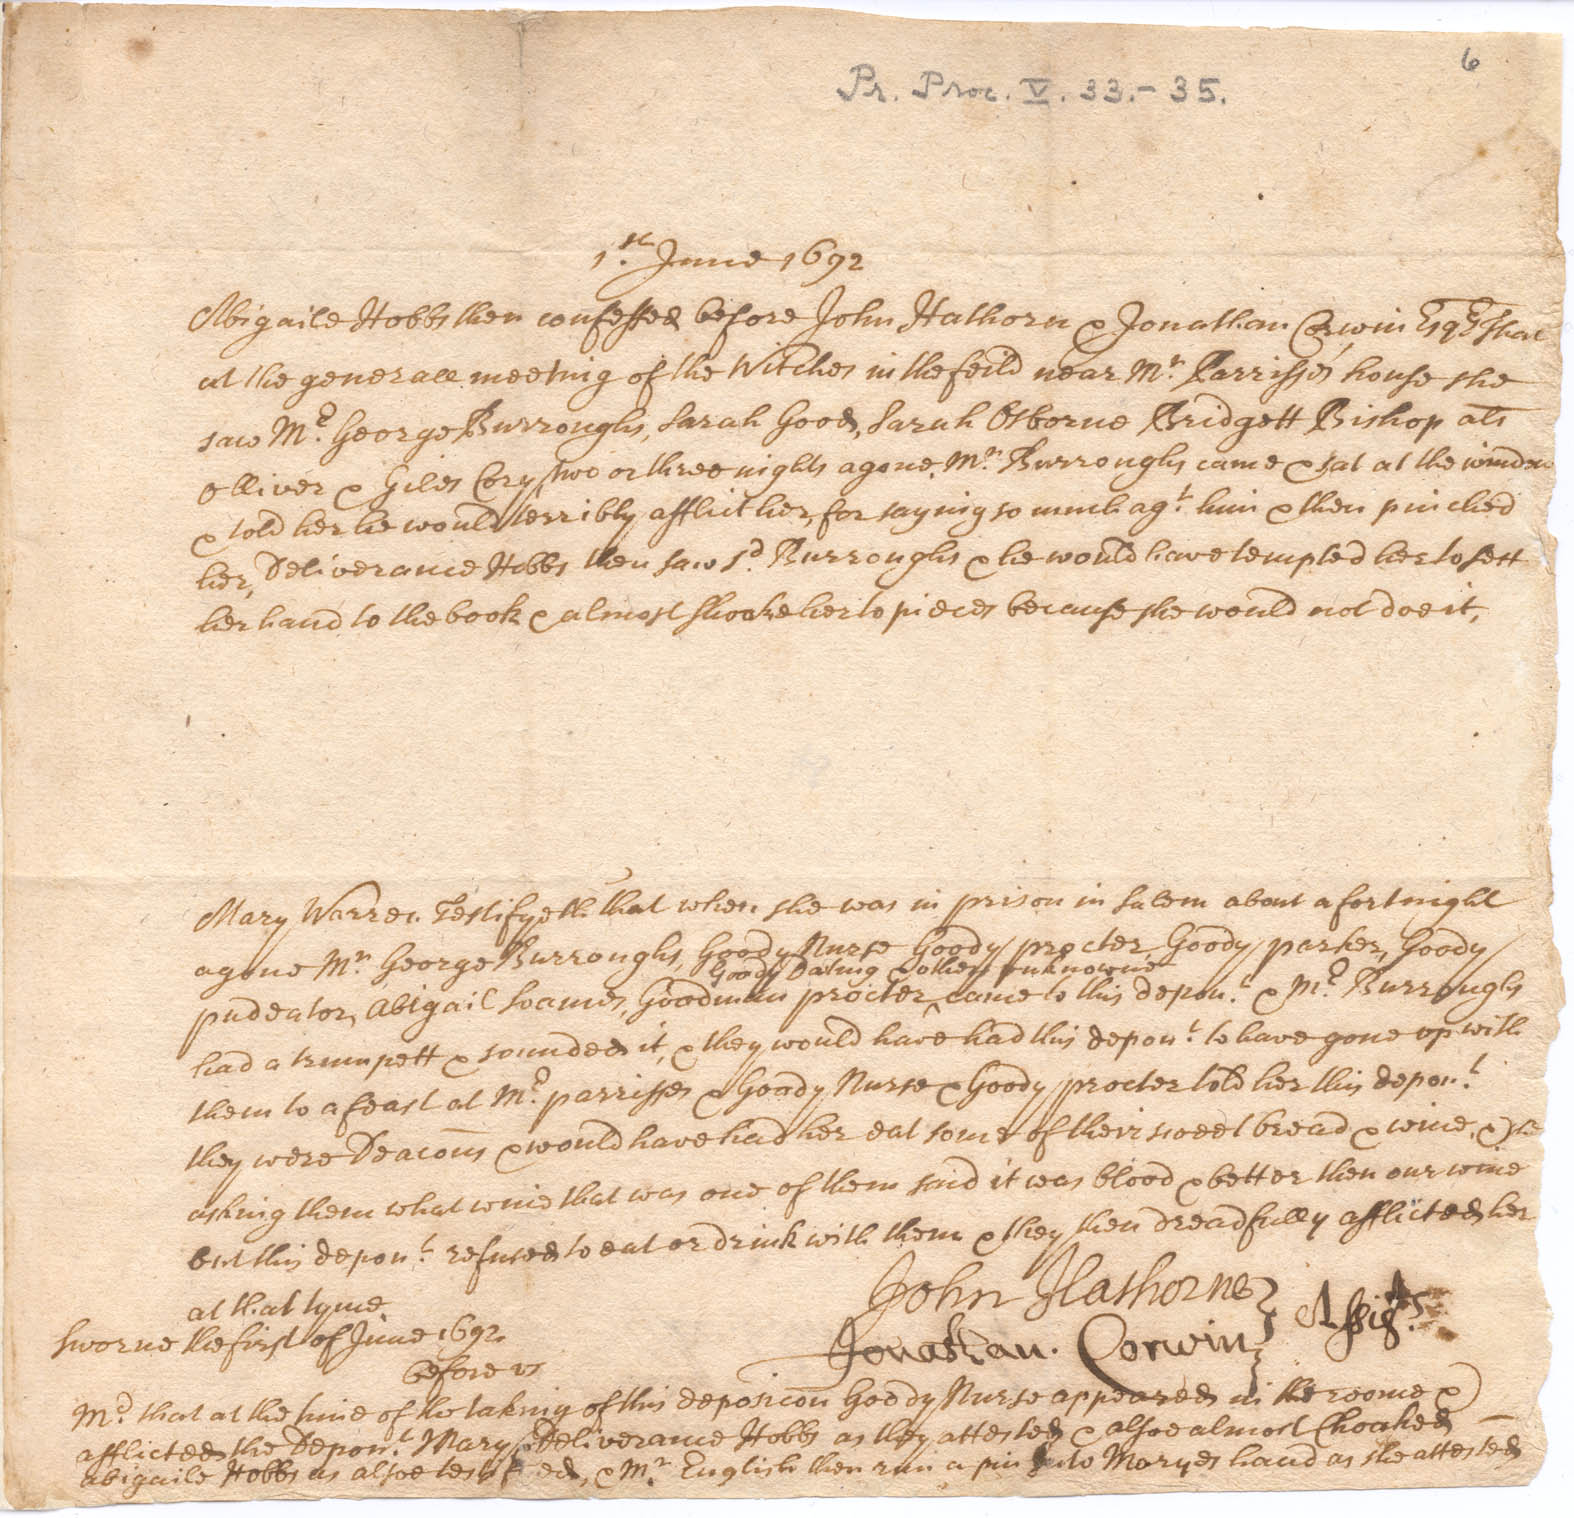 6
Pr. Proc. V. 33.-35.
1.st June 1692
Abigaile Hobbs then confessed before John Hathorn & Jonathan Corwin Esqrs That
at the generall meeting of the Witches in the feild near Mr. Parrisse's house she
saw Mr. George Burroughs, Sarah Good, Sarah Osborne Bridgett Bishop als
Olliver & Giles Cory, two or three nights agone, Mr. Burroughs came & sat at the window
& told her he would terribly afflict her, for saying so much agt. him & then pinched
her, Deliverance Hobbs then saw sd. Burroughs & he would have tempted her to sett
her hand to the book & almost shooke her to pieces because she would not doe it,
Mary Warren Testifyeth that when she was in prison in Salem about a fortnight
agone Mr. George Burroughs, Goody Nurse Goody procter, Goody parker, Goody
pudeator, Abigail Soames, Goodman procter, Goody Darling & others unknowne came to this depont. & Mr. Burroughs
had a trumpett & sounded it, & they would have had this depont. to have gone up with
them to a feast at Mr. parrisses & Goody Nurse & Goody procter told her this depont.
they were Deacons & would have had her eat some of their sweet bread & wine, & she
asking them what wine that was one of them said it was blood & better then our wine
but this depont. refused to eat or drink with them & they then dreadfully afflicted her
at that tyme.
Sworne the first of June 1692.
before us
John Hathorne
Jonathan. Corwin
Assists.
Md. that at the time of the taking of this deposicon Goody Nurse appeared in the roome &
afflicted the Depont. Mary & Deliverance Hobbs as they attested & alsoe almost Choaked
abigaile Hobbs as alsoe testifyed, & Mr. English then run a pin into Maryes hand as she attested